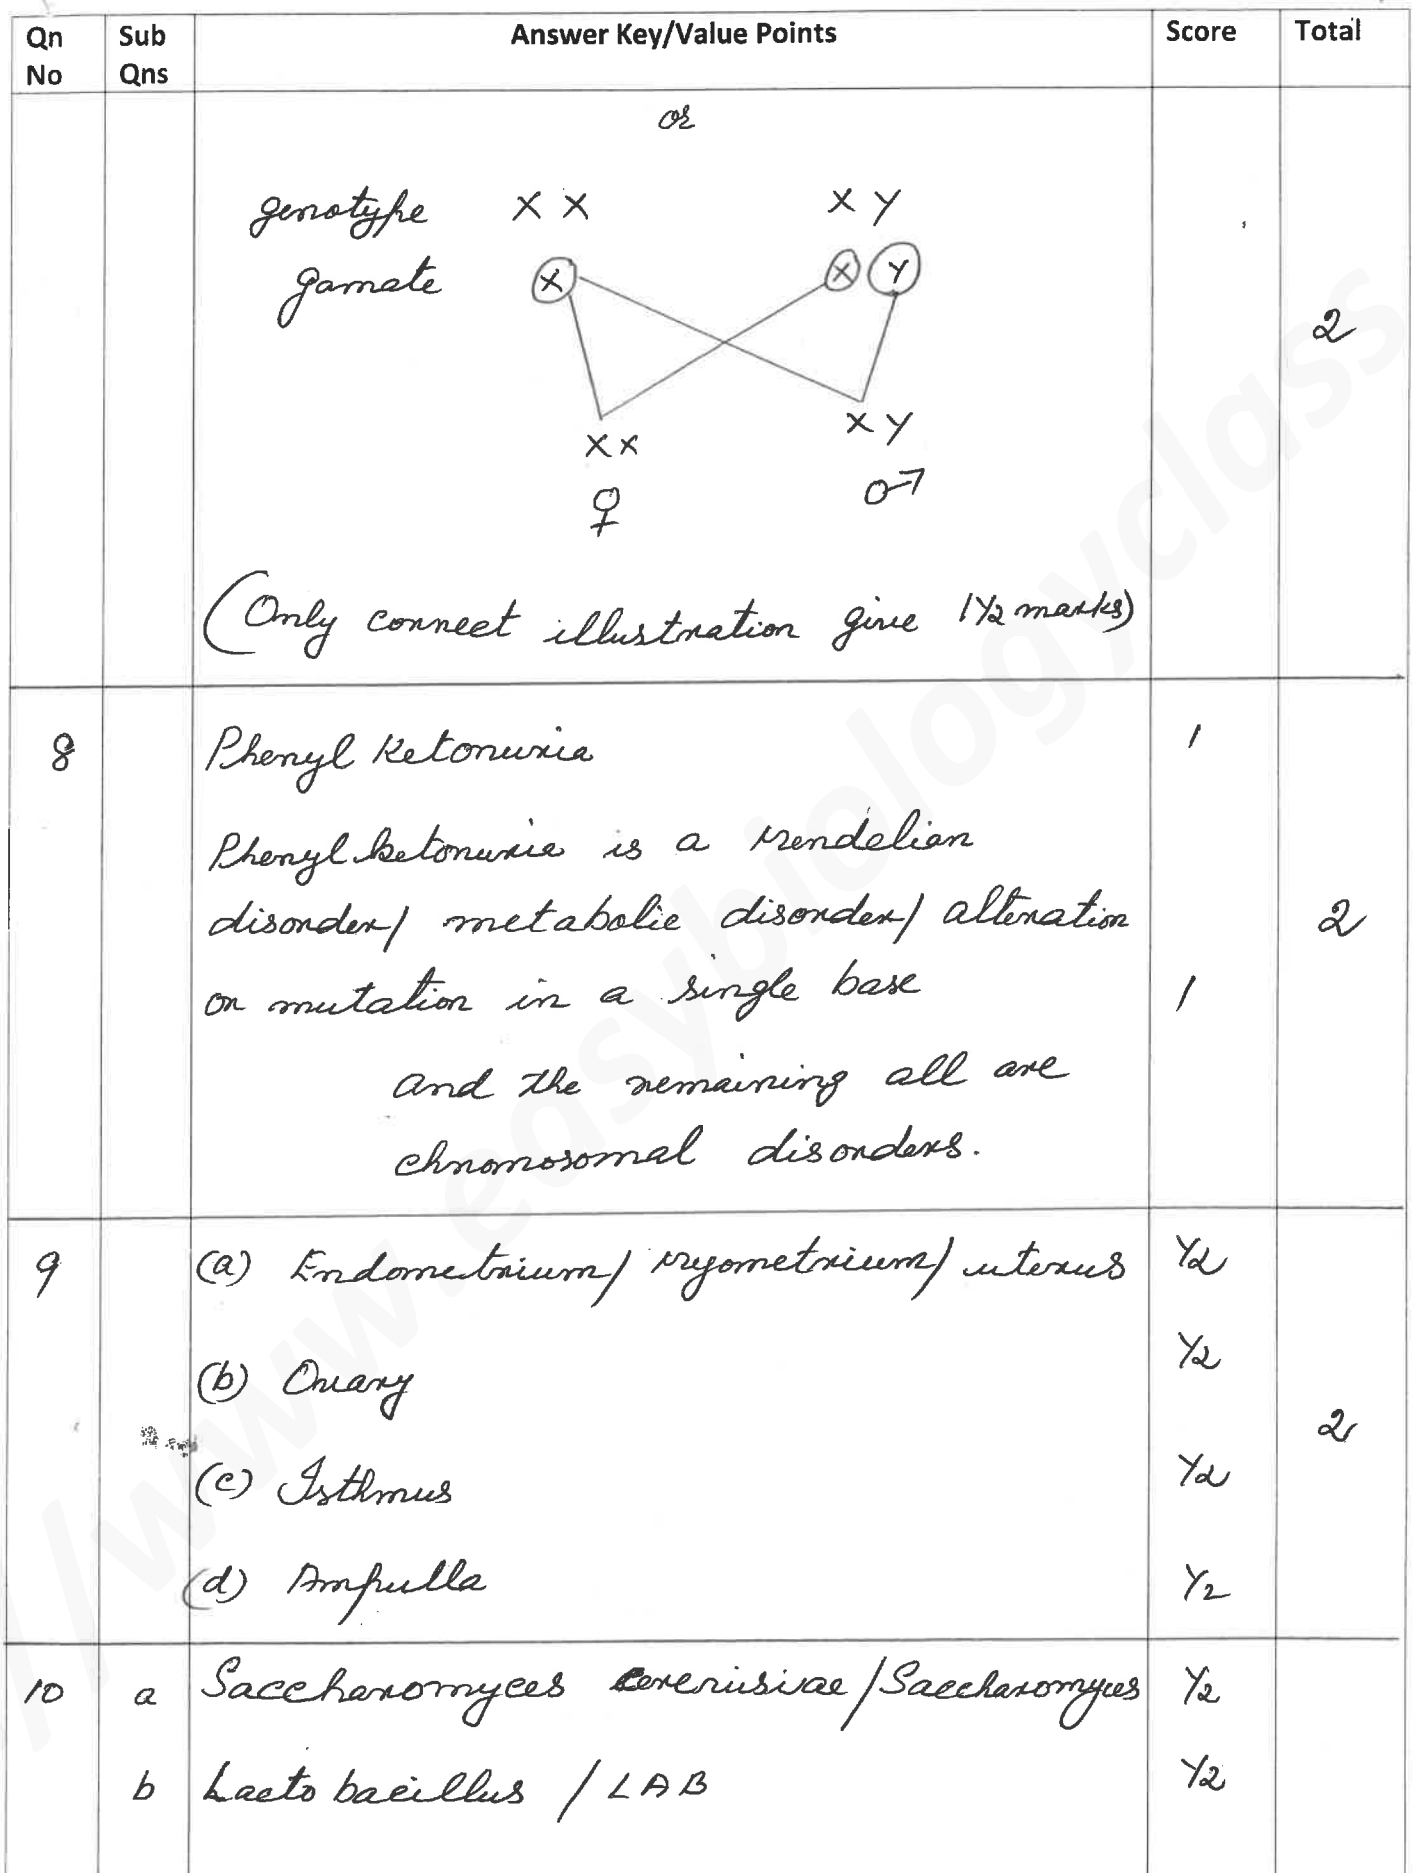 Qn No | Sub Qns | Answer Key/Value Points | Score | Total
or
genotype X X X Y
gamate X X Y
2
XX XY
♀ ♂
(Only correct illustration give 1½ marks)
8 Phenyl Ketonuria 1
Phenyl ketonuria is a Mendelian
disorder/ metabolic disorder/ alteration 2
or mutation in a single base 1
and the remaining all are
chromosomal disorders.
9 (a) Endometrium/ Myometrium/ uterus ½
(b) Ovary ½
2
(c) Isthmus ½
(d) Ampulla ½
10 a Saccharomyces cerevisivae/Saccharomyces ½
b Lacto bacillus / LAB ½
//www.easybiologyclass